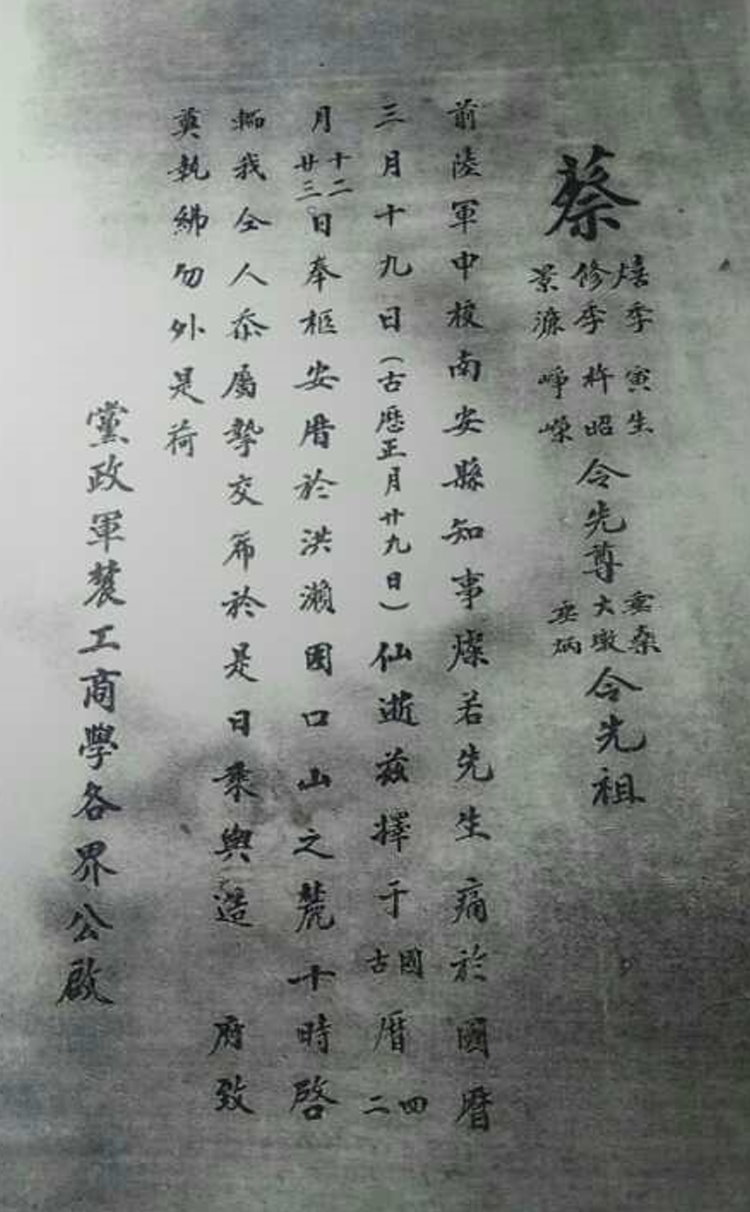 蔡 焙季 修季 景濂 寅生 杵昭 崢嶸 令先尊 垂桑 大墩 垂炳 令先祖
前陸軍中校南安縣知事燦若先生痛於國曆
三月十九日（古歷正月廿九日）仙逝茲擇于國古曆四二
月十二廿三日奉柩安厝於洪瀨園口山之麓十時啓
輀我仝人忝屬摯交希於是日乘輿造 府致
奠執紼勿外是荷
黨政軍農工商學各界公啟